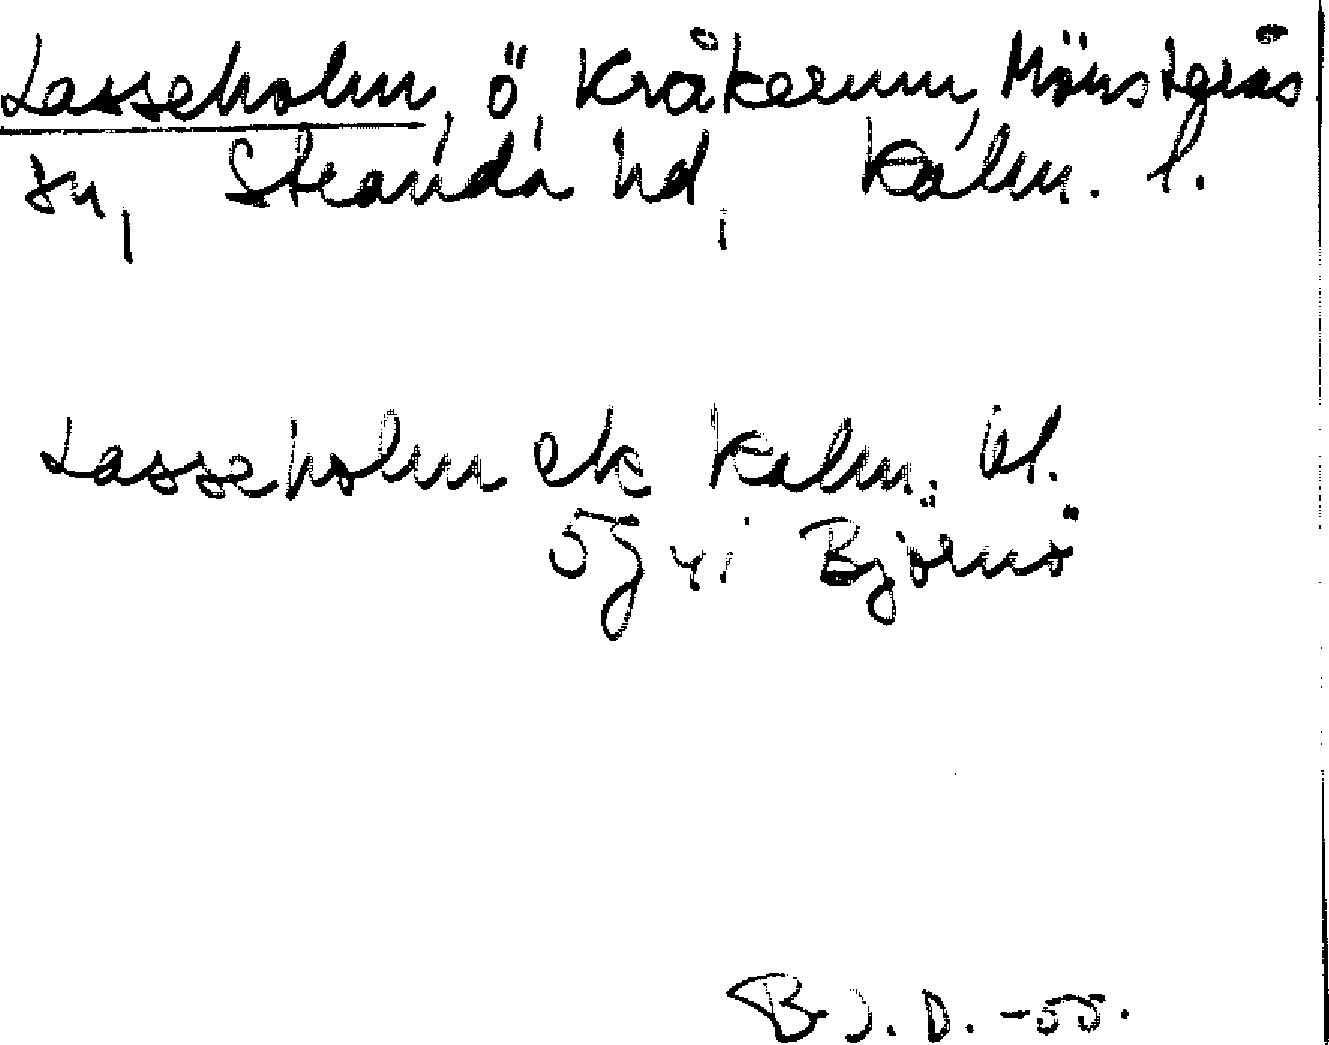 Lasseholm, ö Kråkerum, Mönsterås
sn, Stranda hd, Kalm. l.
Lasseholm ek Kalm. bl.
5j yi Björnö
B.J.D. -55.